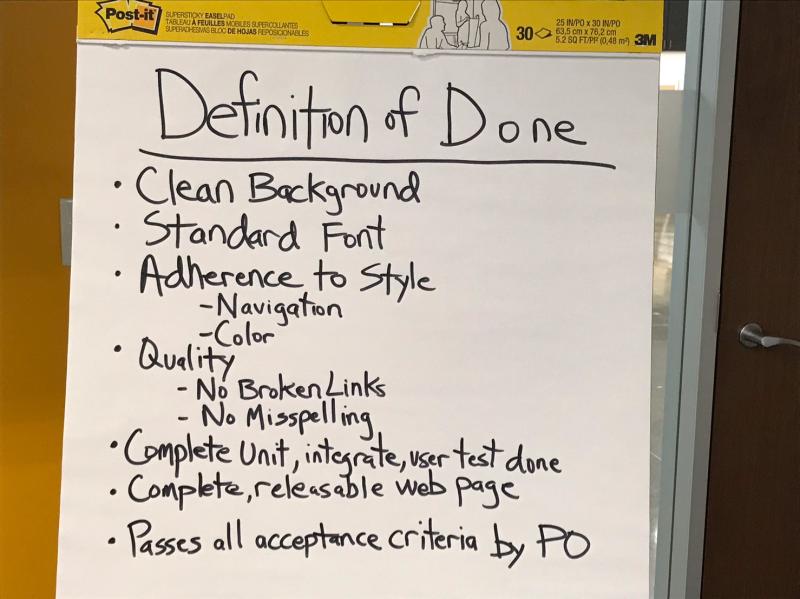 Post-it
SUPERSTICKY EASELPAD
TABLEAU À FEUILLES MOBILES SUPERCOLLANTES
SUPERADHESIVAS BLOC DE HOJAS REPOSICIONABLES
30
25 IN/PO x 30 IN/PO
63,5 cm x 76,2 cm
5.2 SQ FT/PI² (0,48 m²)
3M
Definition of Done
• Clean Background
• Standard Font
• Adherence to Style
- Navigation
- Color
• Quality
- No Broken Links
- No Misspelling
• Complete Unit, integrate, user test done
• Complete, releasable web page
• Passes all acceptance criteria by PO